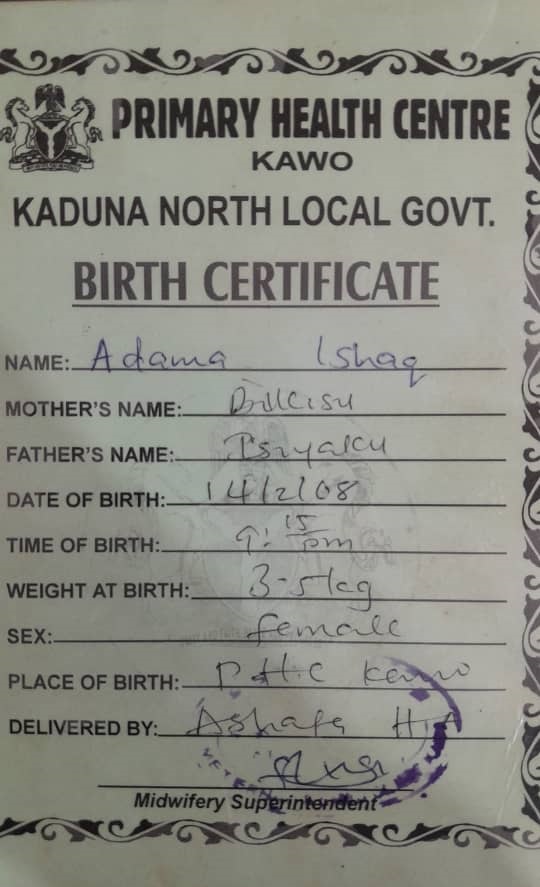 PRIMARY HEALTH CENTRE
KAWO
KADUNA NORTH LOCAL GOVT.
BIRTH CERTIFICATE
NAME: Adama Ishaq
MOTHER'S NAME: Bilkisu
FATHER'S NAME: Isiyaku
DATE OF BIRTH: 14/2/08
TIME OF BIRTH: 9:15 pm
WEIGHT AT BIRTH: 3-5kg
SEX: female
PLACE OF BIRTH: P.H.C Kawo
DELIVERED BY:
Midwifery Superintendent